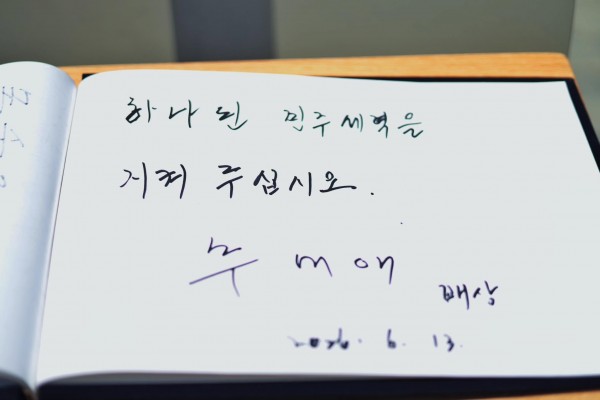 하나 된 민주세력을
지켜 주십시오.
추 미 애
배상
2026. 6. 13.